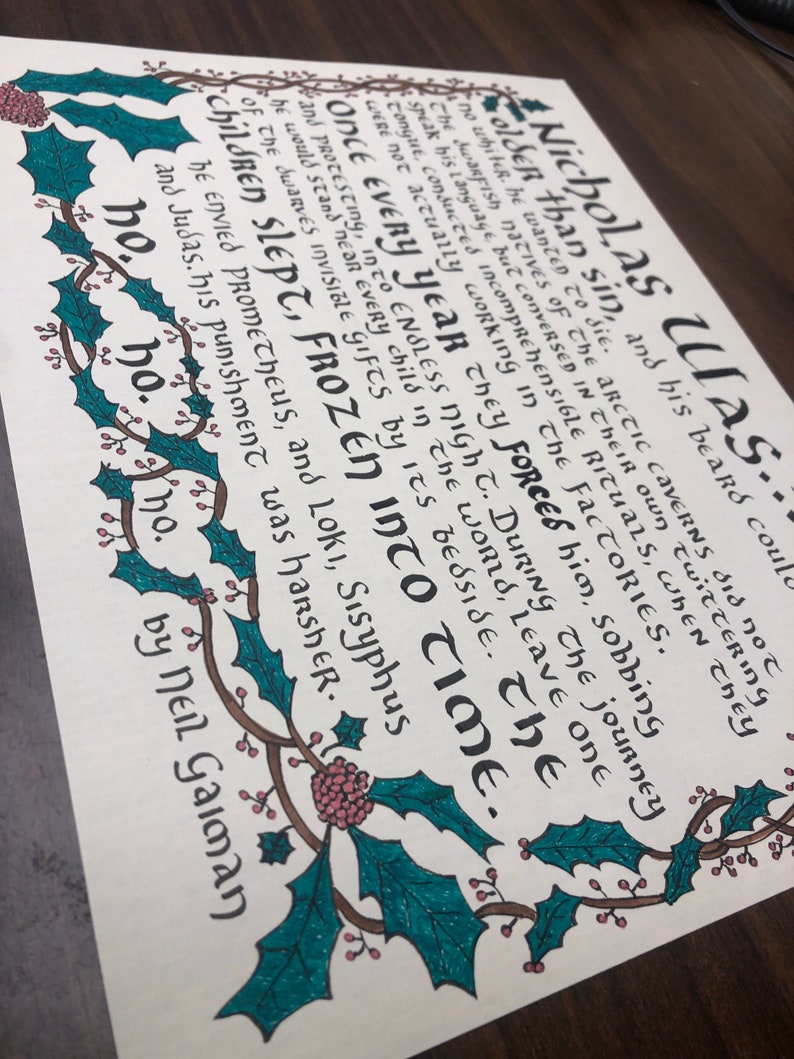 Nicholas Was...
older than sin, and his beard could
no whiter. he wanted to die.
the dwarfish natives of the arctic caverns did not
speak his language, but conversed in their own twittering
tongue, conducted incomprehensible rituals, when they
were not actually working in the factories.
Once every year they forced him, sobbing
and protesting, into endless night. During the journey
he would stand near every child in the world, leave one
of the dwarves invisible gifts by its bedside. the
children slept, frozen into time.
he envied Prometheus, and Loki, Sisyphus
and Judas. his punishment was harsher.
ho.
ho.
ho.
by Neil Gaiman